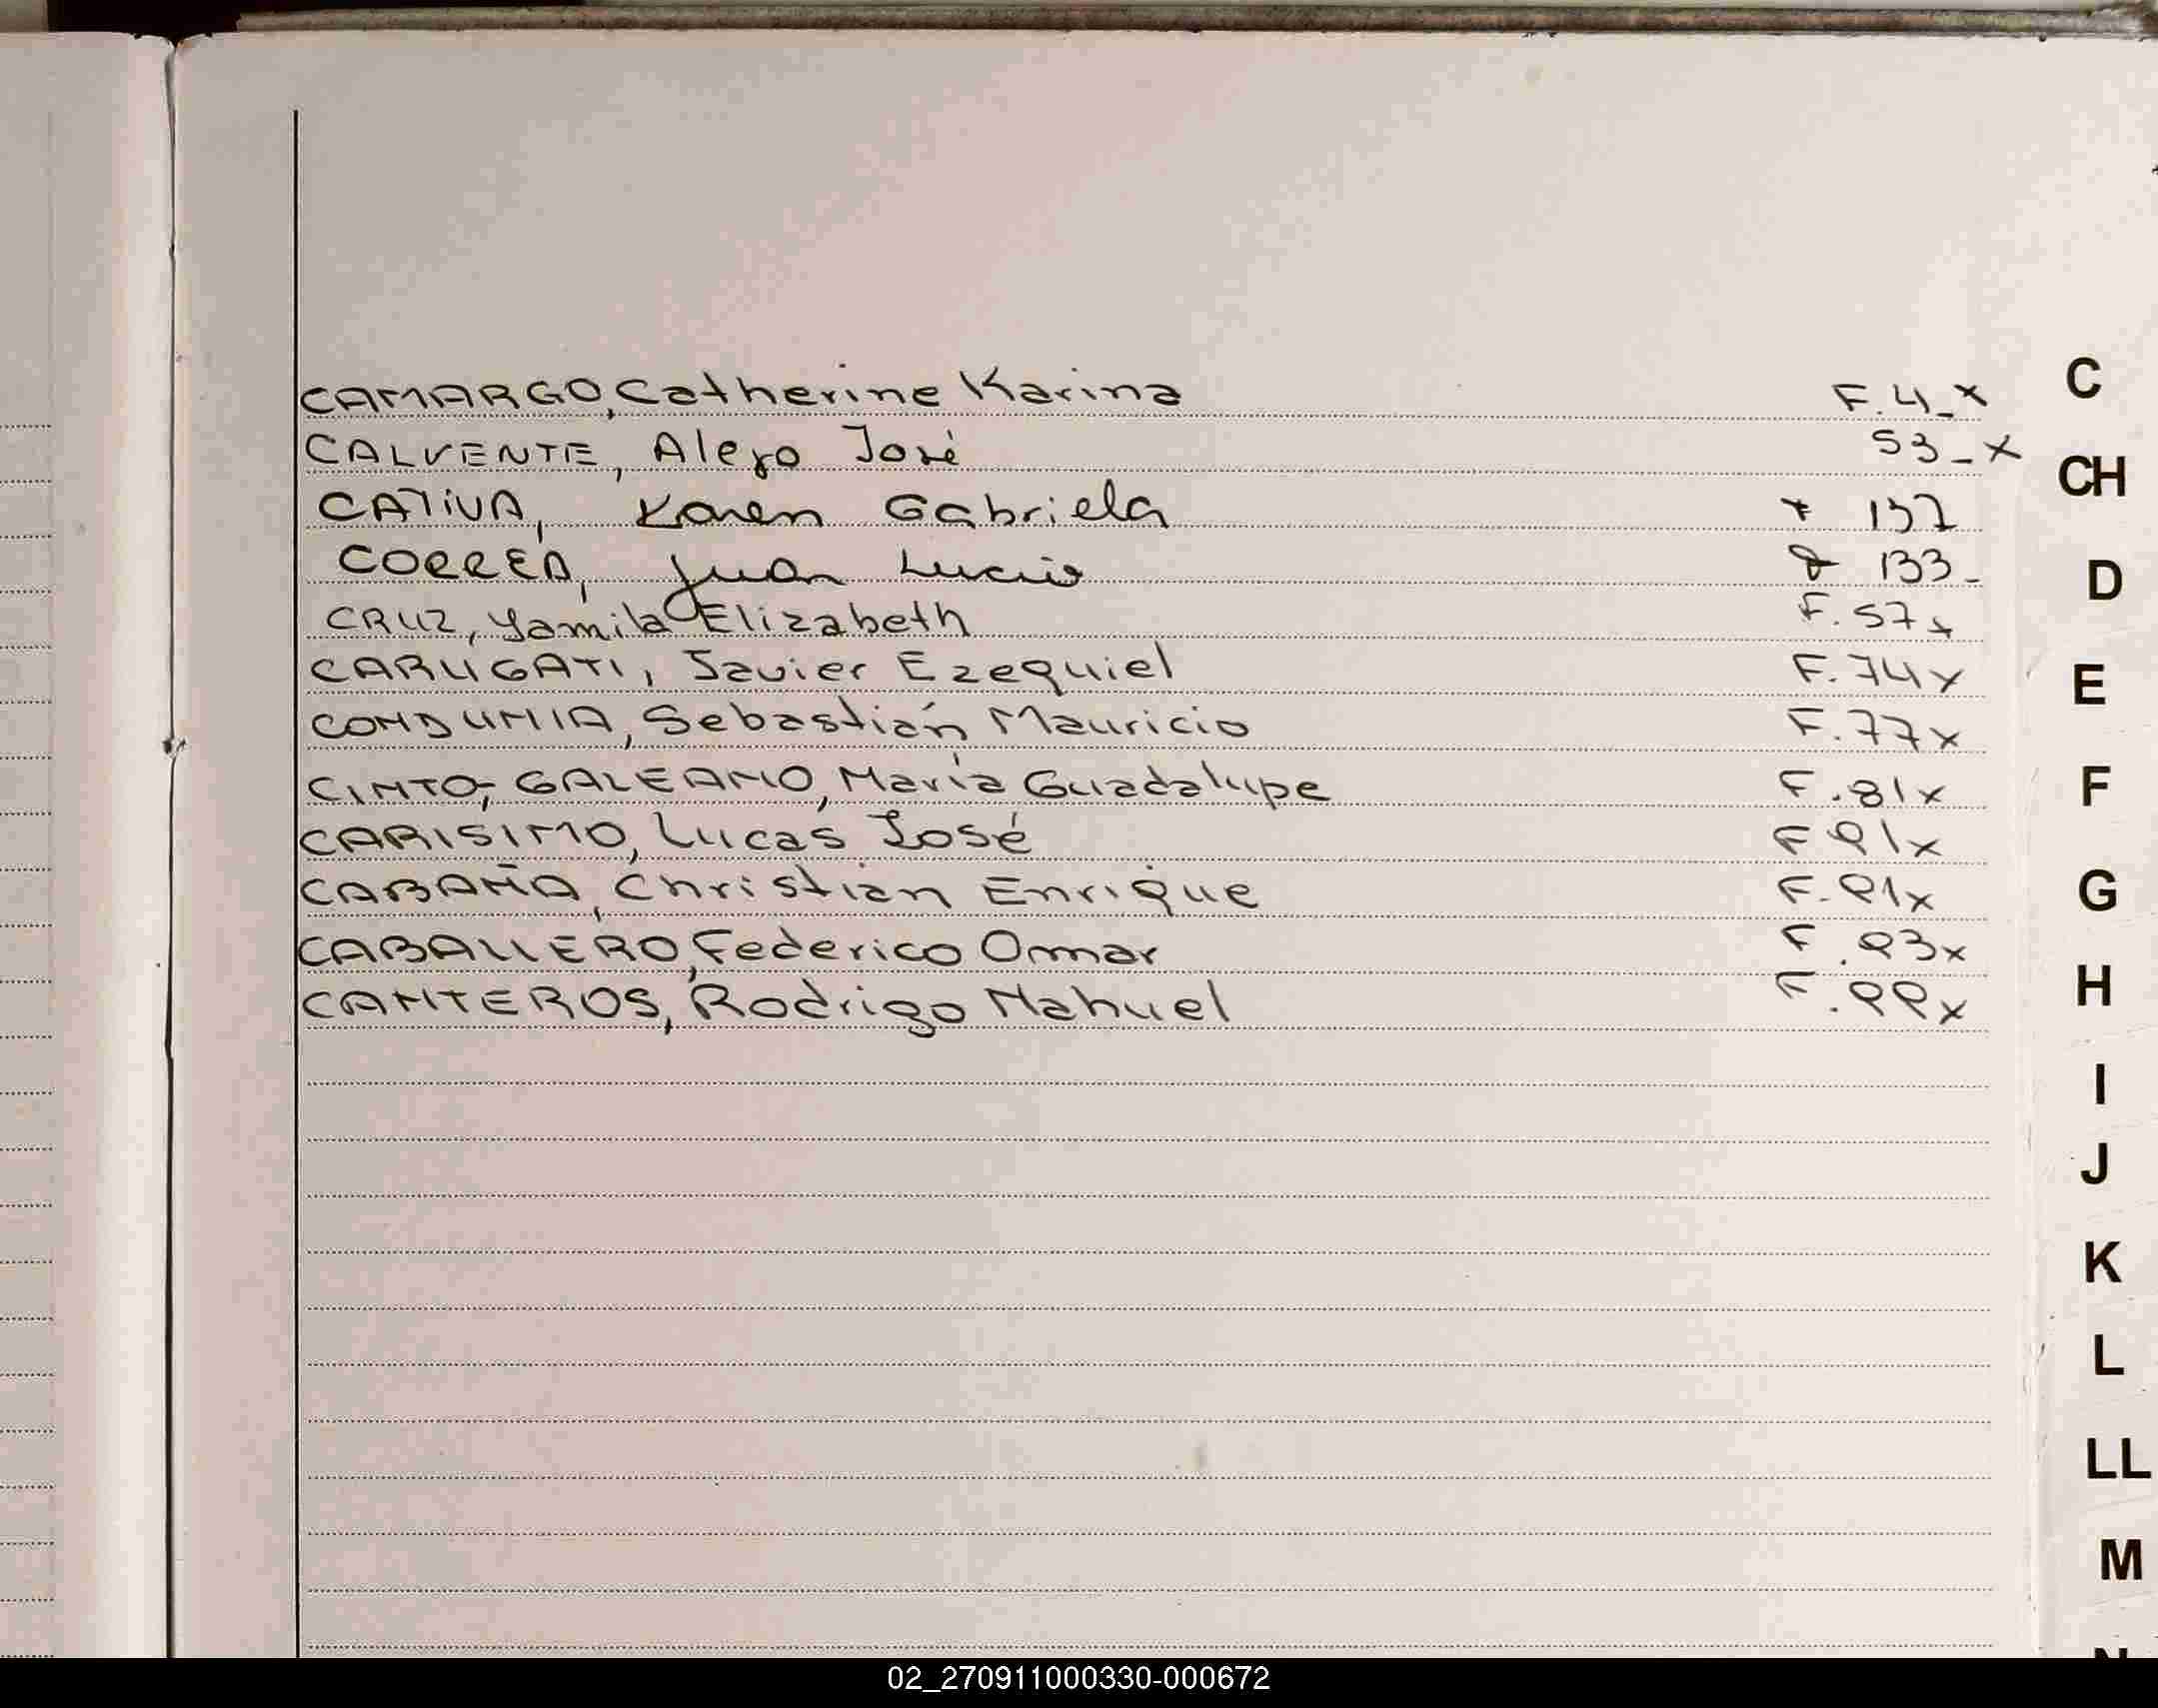 CAMARGO, Catherine Karina F. 4_x
CALVENTE, Alejo José 53_x
CATIVA, Karen Gabriela x 137
CORREA, Juan Lucio 133_
CRUZ, Yamila Elizabeth F. 57x
CARUGATI, Javier Ezequiel F. 74x
CONDUMIA, Sebastián Mauricio F. 77x
CINTO, GALEANO, María Guadalupe F. 81x
CARISIMO, Lucas José F 91x
CABAÑA, Christian Enrique F. 91x
CABALLERO, Federico Omar F. 93x
CANTEROS, Rodrigo Nahuel F. 99x
C
CH
D
E
F
G
H
I
J
K
L
LL
M
02_270911000330-000672